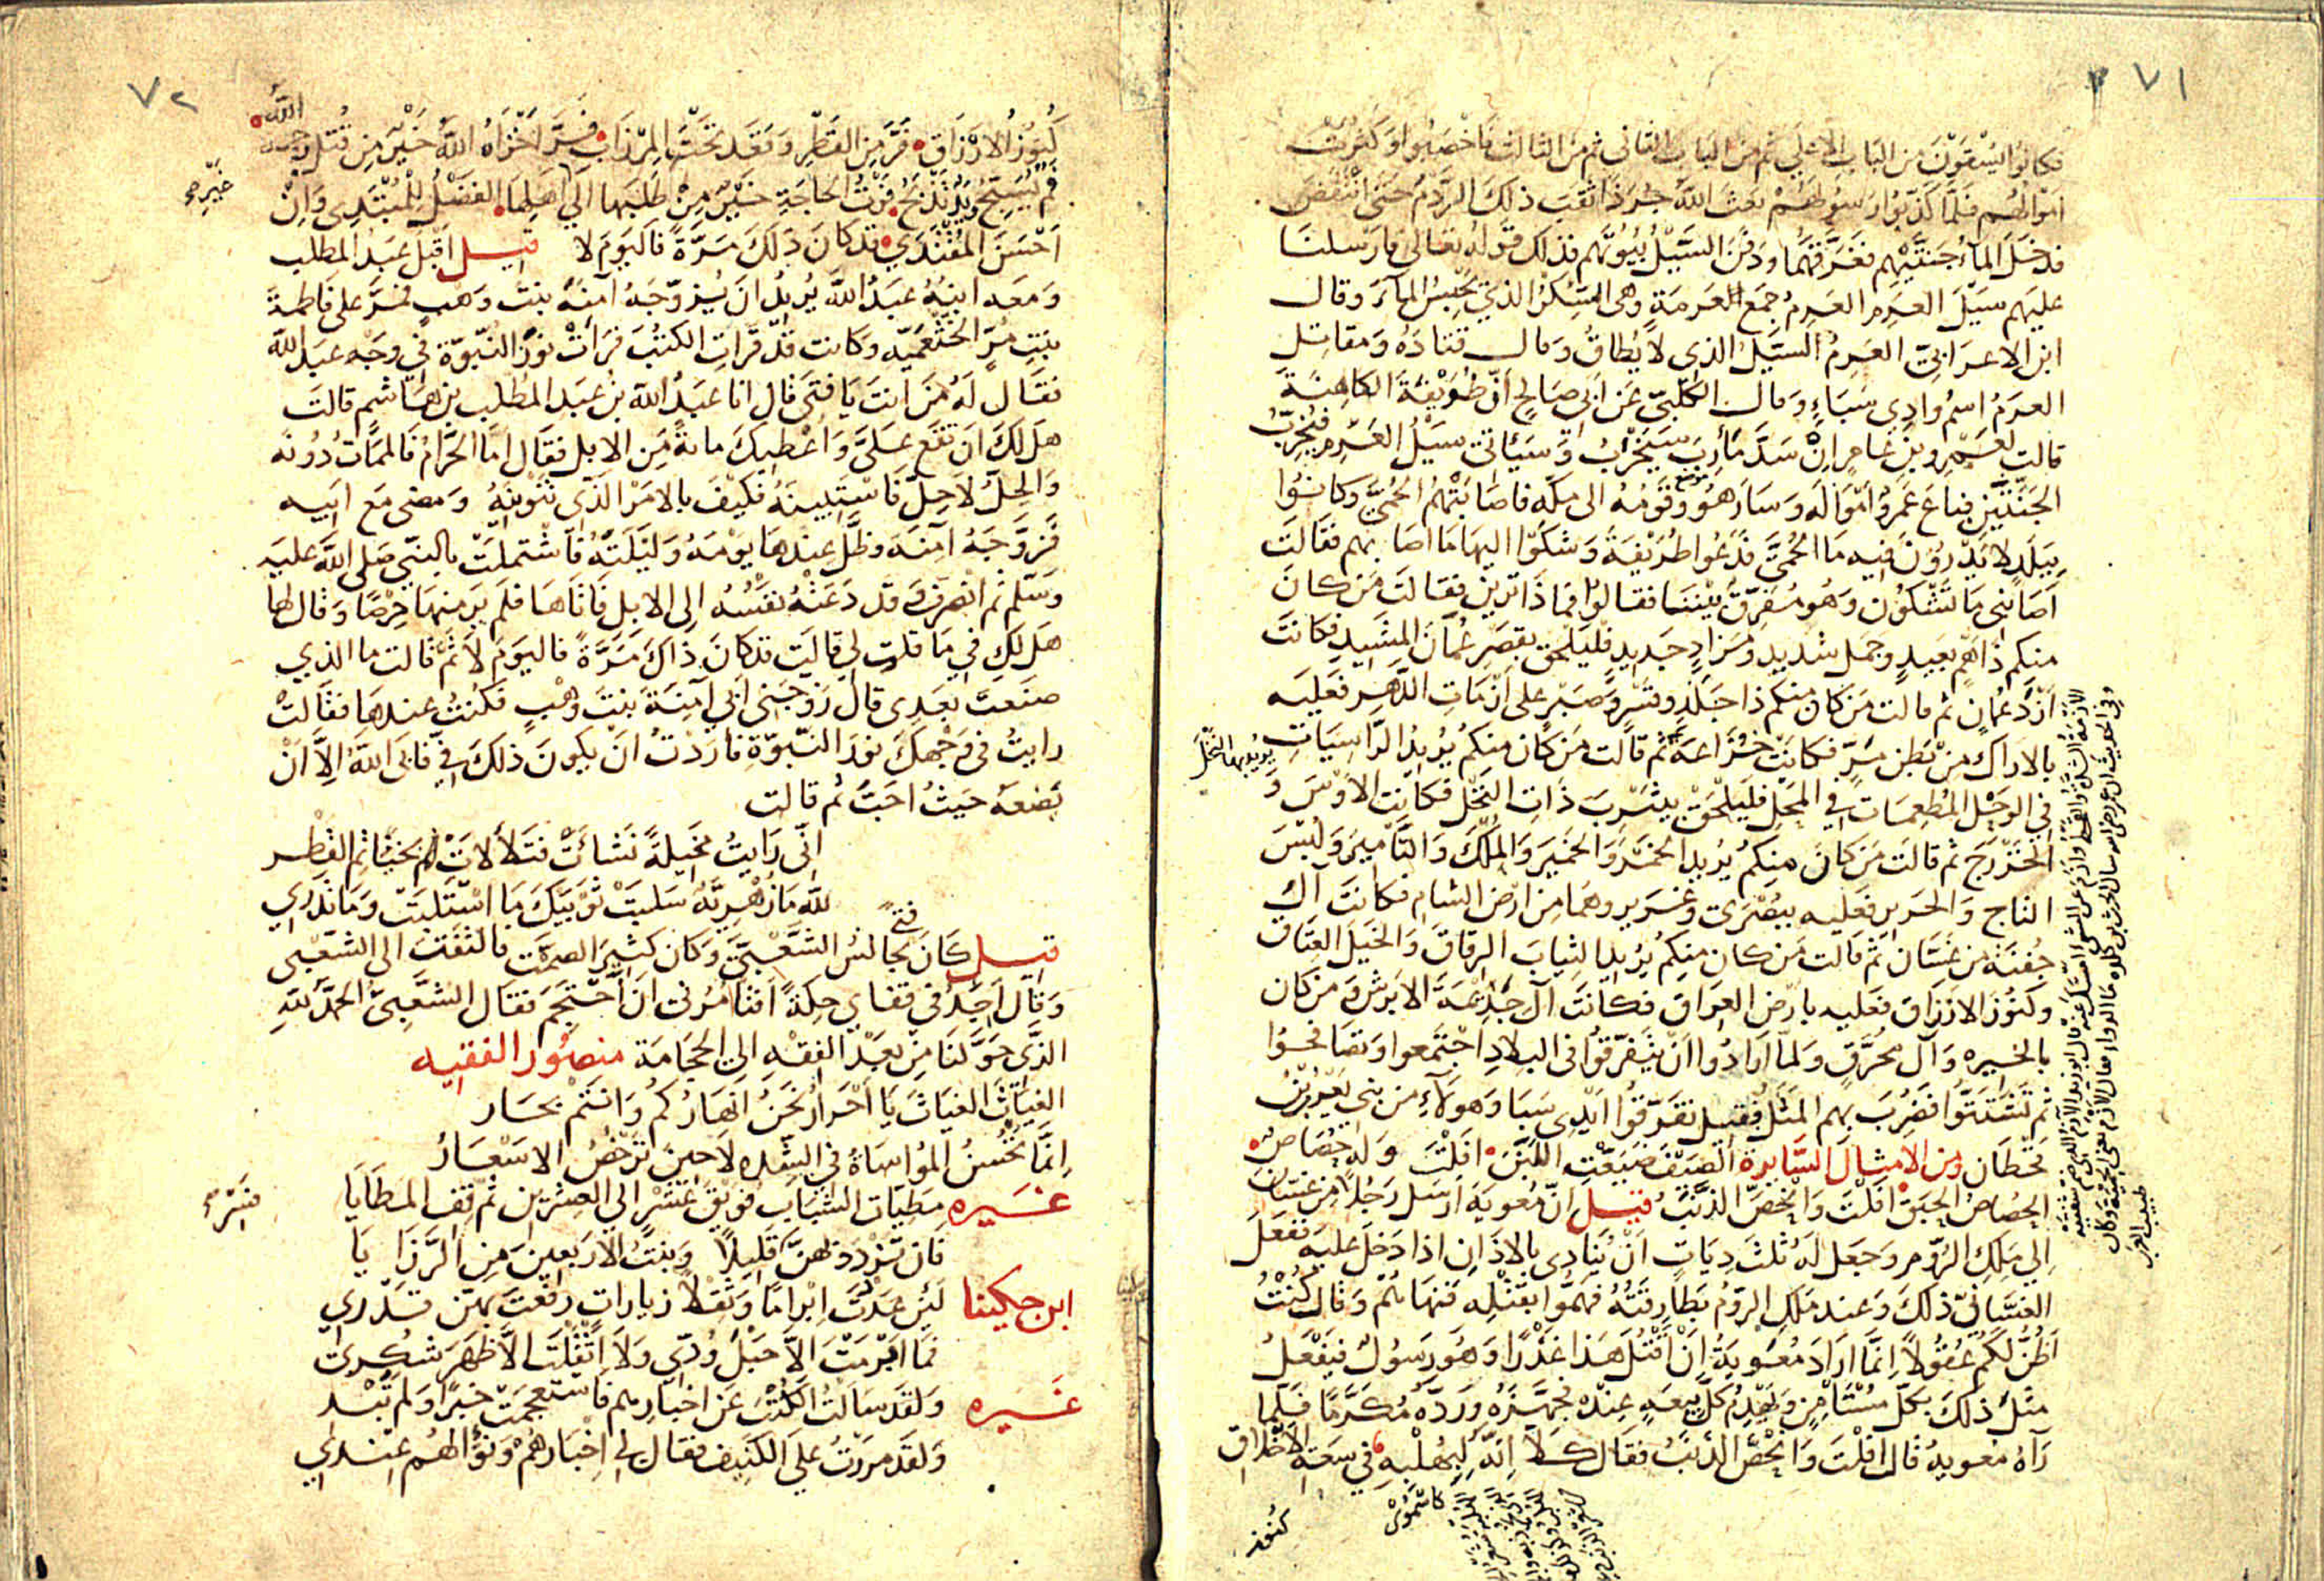 ٧١
فكانوا يسقون من الباب الاعلى ثم من الباب الثاني ثم من الثالث فاخصبوا وكثرت
اموالهم فلما كذبوا رسولهم بعث الله جرذا ثقب ذلك الردم حتى انتقض
فدخل الماء جنتيهم فغرقهما ودفن السيل بيوتهم فذلك قوله تعالى فارسلنا
عليهم سيل العرم العرم جمع العرمة وهى السكر الذي يحبس الماء وقال
ابن الاعرابي العرم السيل الذي لا يطاق وقال قتادة ومقاتل
العرم اسم وادي سباء وقال الكلبي عن ابي صالح ان طريفة الكاهنة
قالت لعمرو بن عامر ان سد مأرب سيخرب وسيأتى سيل العرم فيخرب
الجنتين فباع عمرو امواله وسار هو وقومه الى مكه فاصابتهم الحمى وكانوا
ببلد لا يدرون فيه ما الحمى فدعوا طريفة وشكوا اليها ما اصابهم فقالت
اصابنى ما تشكون وهو مفرق بيننا فقالوا فماذا ترين فقالت من كان
منكم ذا هم بعيد وجمل شديد ومزاد جديد فليلحق بقصر عمان المشيد فكانت
ازد عمان ثم قالت من كان منكم ذا جلد وقسر وصبر على ازمات الدهر فعليه
بالاراك من بطن مر فكانت خزاعة ثم قالت من كان منكم يريد الراسيات
في الوحل المطعمات في المحل فليلحق بيثرب ذات النخل فكانت الاوس و
الخزرج ثم قالت من كان منكم يريد الخمر والخمير والملك والتامير ولبس
التاج والحرير فعليه ببصرى وغوير وهما من ارض الشام فكانت آل
جفنة من غسان ثم قالت من كان منكم يريد الثياب الرقاق والخيل العتاق
وكنوز الارزاق فعليه بارض العراق فكانت آل جذيمة الابرش ومن كان
بالحيره وآل محرق ولما ارادوا ان يتفرقوا فى البلاد اجتمعوا وتصافحوا
ثم تشتتوا فضرب بهم المثل فقيل تفرقوا ايدي سبا وهولاء من بني يعرب بن
قحطان ومن الامثال السايرة الصيف ضيعت اللبن افلت وله حصاص
الحصاص الحبق افلت وانحص الذنب قيل ان معوية ارسل رجلا من غسان
الي ملك الروم وجعل له ثلث ديات ان ينادى بالاذان اذا دخل عليه ففعل
الغساني ذلك وعند ملك الروم بطارقته فهموا بقتله فنهاهم وقال كنت
اظن لكم عقولا انما اراد معوية ان اقتل هذا غدرا وهو رسول فيفعل
مثل ذلك بكل مستامن ويهدم كل بيعة عنده فجهزه ورده مكرما فلما
رآه معويه قال افلت وانحص الذنب فقال كلا انه لبهلبه في سعة الاخلاق
يريد بها النخل
كنوز
٧٢
كنوز الارزاق فر من القطر وقعد تحت المرزاب فر اخزاه الله خير من قتل رحمه الله
فم يسبح ويد تذبح فوت الحاجة خير من طلبها الي اهلها الفضل للمبتدى وان
احسن المقتدي قد كان ذلك مرة فاليوم لا قيل اقبل عبد المطلب
ومعه ابنه عبد الله يريد ان يزوجه آمنة بنت وهب فمر على فاطمة
بنت مر الخثعميه وكانت قد قرات الكتب فرات نور النبوة في وجه عبد الله
فقال له من انت يا فتى قال انا عبد الله بن عبد المطلب بن هاشم قالت
هل لك ان تقع علي واعطيك مائة من الابل فقال اما الحرام فالممات دونه
والحل لا حل فاستبينه فكيف بالامر الذي تنوينه ومضى مع ابيه
فزوجه آمنة وظل عندها يومه وليلته فاشتملت بالنبي صلى الله عليه
وسلم ثم انصرف وقد دعته نفسه الى الابل فاتاها فلم ير منها حرصا وقال لها
هل لك في ما قلت لي قالت قد كان ذاك مرة فاليوم لا ثم قالت ما الذي
صنعت بعدى قال زوجني ابي آمنة بنت وهب فكنت عندها فقالت
رايت فى وجهك نور النبوة فاردت ان يكون ذلك في فابى الله الا ان
يضعه حيث احب ثم قالت
انى رايت مخيلة نشأت فتلألأت بحناتم القطر
لله ما زهرية سلبت ثوبيك ما استلبت وما تدري
قيل كان فتى يجالس الشعبي وكان كثير الصمت فالتفت الى الشعبى
وقال اجد في قفاي حكة افتامرني ان احتجم فقال الشعبي الحمد لله
الذي حولنا من بعد الفقه الى الحجامة منصور الفقيه
الغياث الغياث يا احرار نحن انهاركم وانتم بحار
انما تحسن المواساة في الشده لا حين ترخص الاسعار
غيره مطيات الشباب فويق عشر الي العشرين ثم قف المطايا
فان تزدد فهن قليلا وبنت الاربعين من الرزايا
ابن حكينا لئن عدت ابراما وثقلا زيارات رفعت بهن قدري
فما ابرمت الا حبل ودي ولا اثقلت الا ظهر شكرى
غيره ولقد سالت الكتب عن اخبارهم فاستعجمت خبرا ولم تبد
ولقد مررت على الكنيف فقال لي اخبارهم ونوالهم عندي